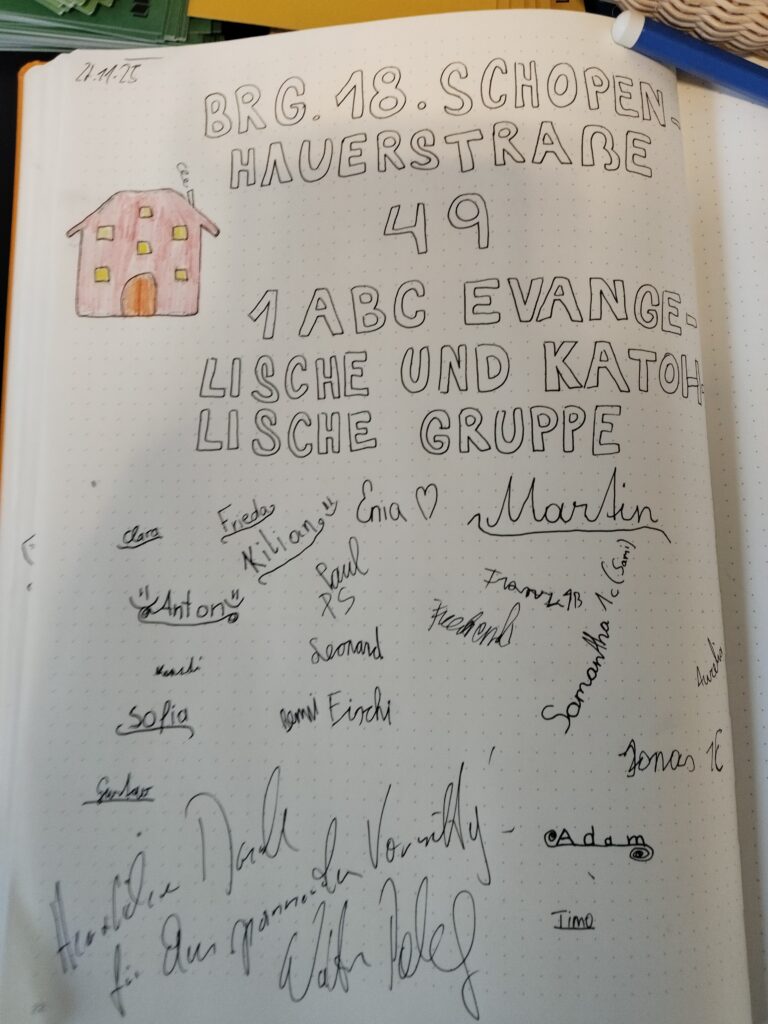 21.11.25
BRG. 18. SCHOPEN-
HAUERSTRAßE
49
1 ABC EVANGE-
LISCHE UND KATOH-
LISCHE GRUPPE
Clara
Frieda
Kilian
Enia ♡
Martin
Anton
Paul
PS
Samantha 1c (Sami)
Leonard
Sofia
Aurelia
Jonas 1C
Gustav
Adam
Timo
Herzlichen Dank
für den spannenden Vormittag